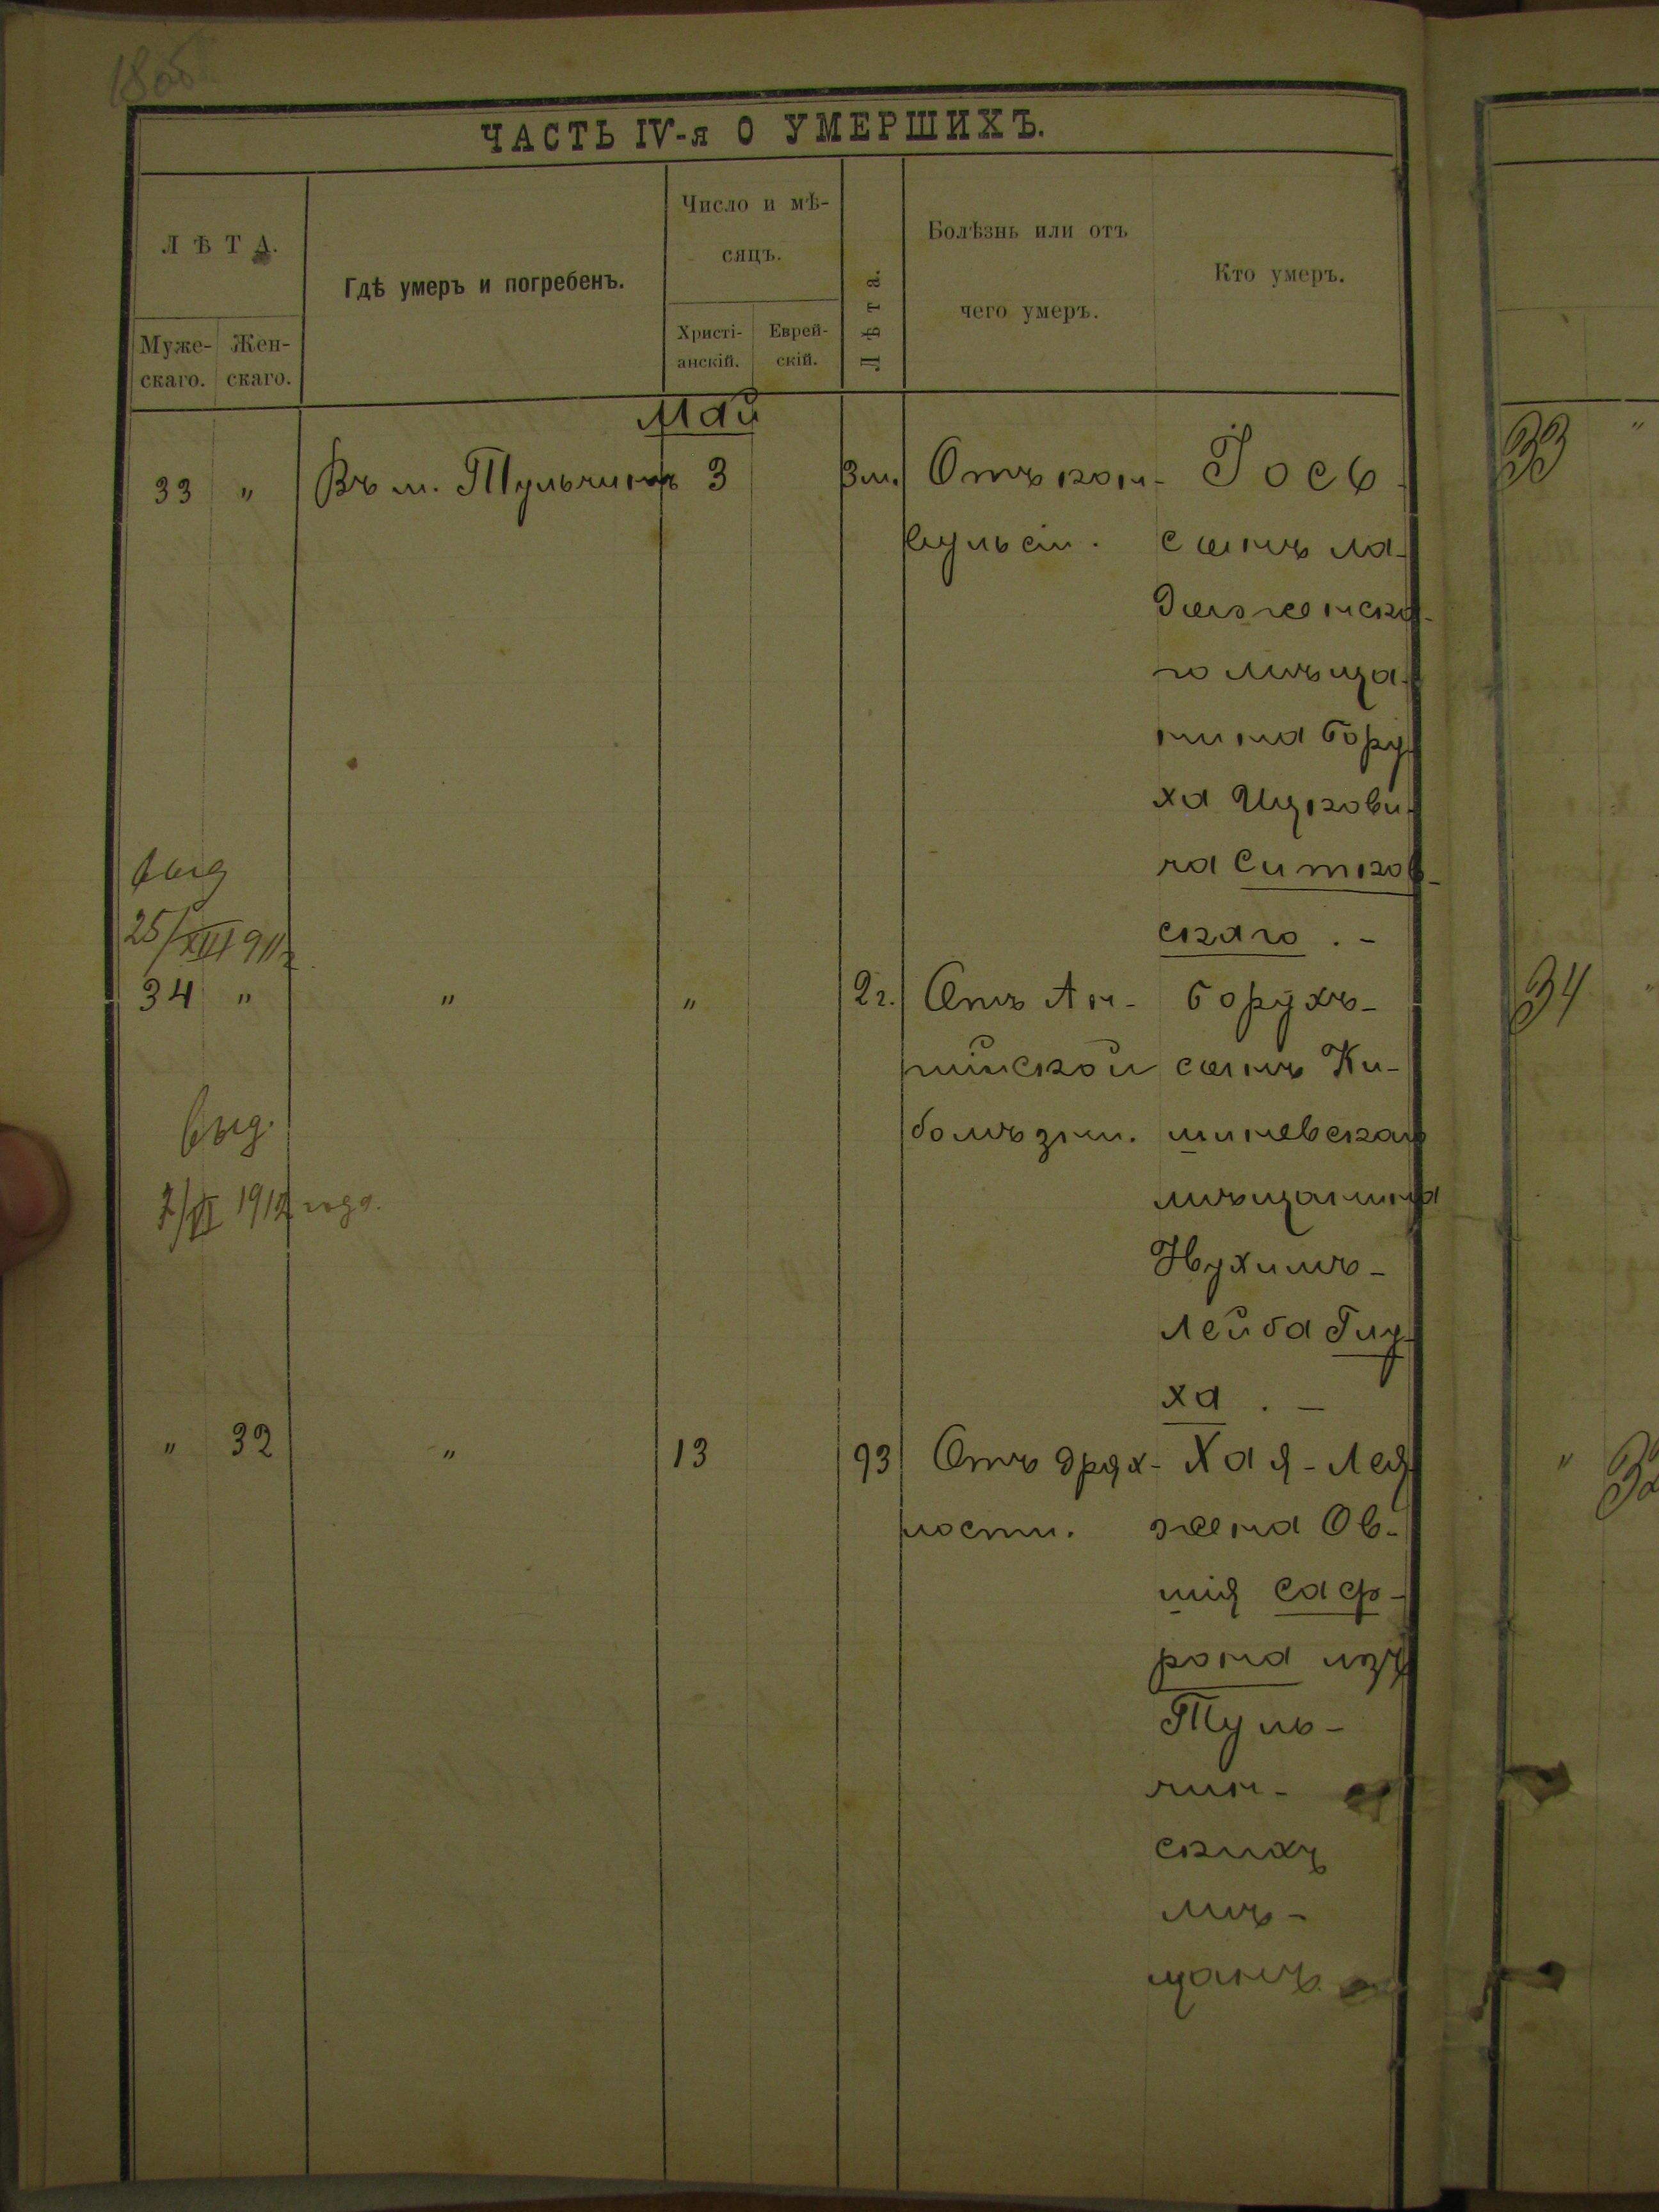 18об
ЧАСТЬ IV-я О УМЕРШИХЪ.
ЛѢТА.
Муже-
скаго.
Жен-
скаго.
Гдѣ умеръ и погребенъ.
Число и мѣ-
сяцъ.
Христі-
анскій.
Еврей-
скій.
Лѣта.
Болѣзнь или отъ
чего умеръ.
Кто умеръ.
Май
33 " Въ м. Тульчинѣ 3 3 м.
Отъ кон-
вульсіи.
Іось
сынъ ла-
дыженска-
го мѣща-
нина Бору
ха Ицкови-
ча Ситков-
скаго . -
выд
25/XII 1911
34 " " " 2 г.
Отъ Ан-
глійской
болѣзни.
Борухъ-
сынъ Ки-
шиневскаго
мѣщанина
Нухимъ-
Лейба Глу-
ха . -
выд.
7/VI 1912 года.
" 32 " 13 93
Отъ дрях-
лости.
Хая-Лея
жена Ов-
шія Саф-
рона изъ
Туль-
чин-
скихъ
мѣ-
щанъ
33 "
34 "
" 32